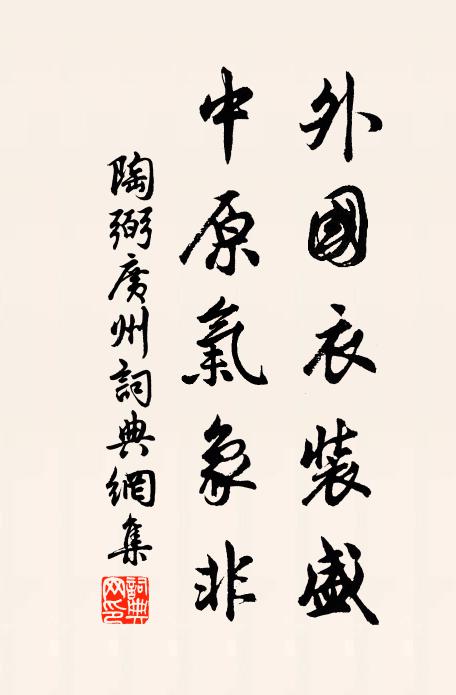 外國衣裝盛
中原氣象非
陶弼廣州詞典網集
詞典網印